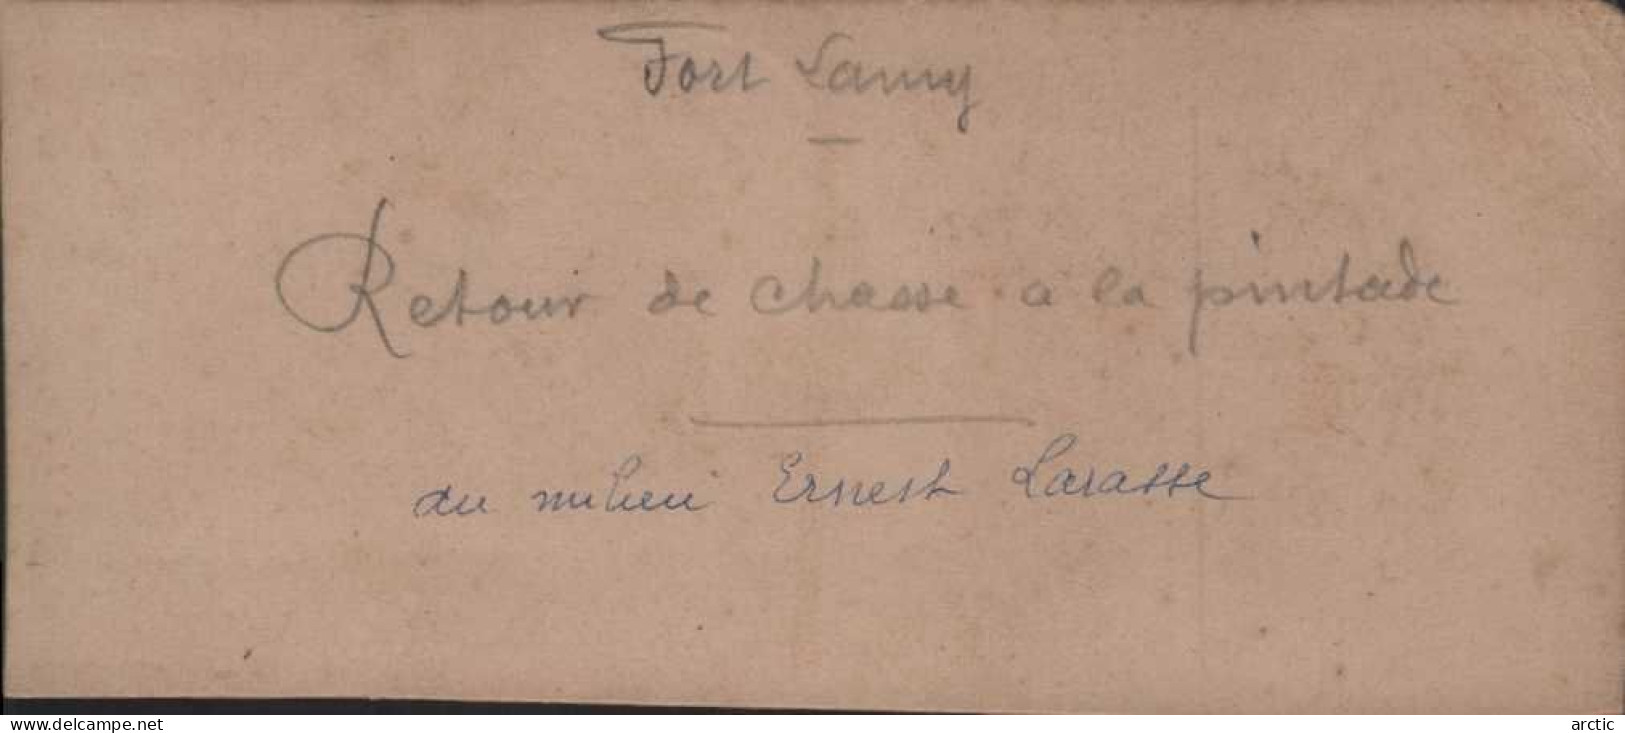 Fort Lamy
Retour de chasse a la pintade
au milieu Ernest Larasse
www.delcampe.net
arctic